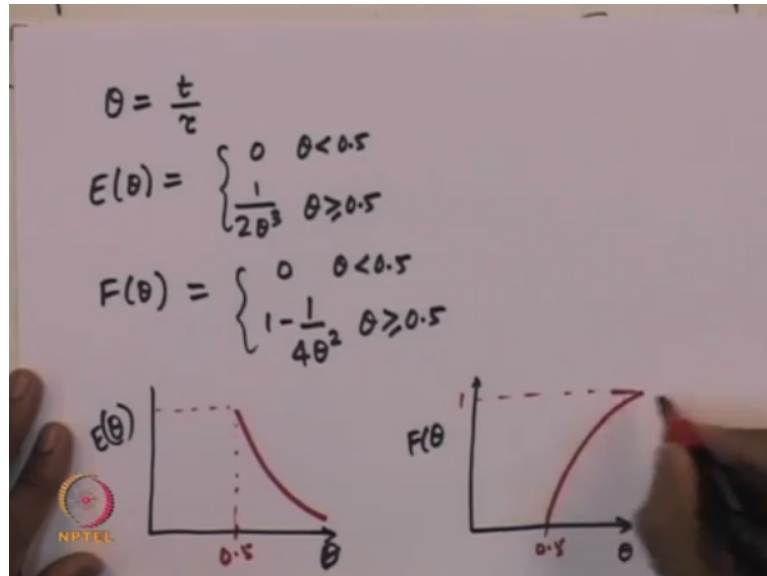 θ = t/τ
E(θ) = { 0 θ < 0.5
1/2θ³ θ ≥ 0.5
F(θ) = { 0 θ < 0.5
1 - 1/4θ² θ ≥ 0.5
E(θ)
0.5 θ
F(θ
1
0.5 θ
NPTEL